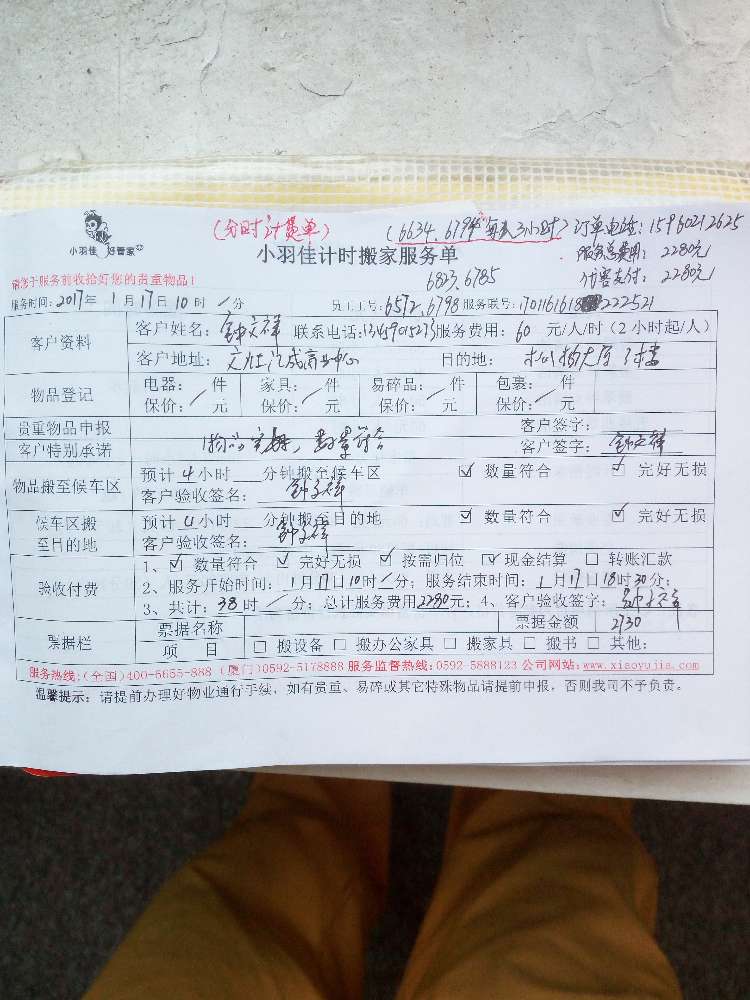 (分时计费单)
(6634.6794 每人3小时) 订单电话: 15960212625
小羽佳 好管家
小羽佳计时搬家服务单
服务总费用: 2280元
请您于服务前收拾好您的贵重物品!
6823.6785
代客支付: 2280元
服务时间: 2017年 1月17日10时/分
员工工号: 6572.6798 服务联号: 222521
客户资料
客户姓名: 联系电话:13459015273 服务费用: 60 元/人/时(2小时起/人)
客户地址: 目的地:
物品登记
电器: / 件 家具: / 件 易碎品: / 件 包裹: / 件
保价: / 元 保价: / 元 保价: / 元 保价: / 元
贵重物品申报 客户签字:
客户特别承诺 数量符合 客户签字:
物品搬至候车区
预计 4 小时 分钟搬至候车区 ☑ 数量符合 ☑ 完好无损
客户验收签名:
候车区搬至目的地
预计 4 小时 分钟搬至目的地 ☑ 数量符合 ☑ 完好无损
客户验收签名:
验收付费
1、☑ 数量符合 ☑ 完好无损 ☑ 按需归位 ☑ 现金结算 □ 转账汇款
2、服务开始时间: 1月17日10时/分; 服务结束时间: 1月17日18时30分;
3、共计: 38 时 / 分; 总计服务费用2280元; 4、客户验收签字:
票据栏
票据名称 票据金额 2730
项 目 □ 搬设备 □ 搬办公家具 □ 搬家具 □ 搬书 □ 其他:
服务热线:(全国)400-5655-888 (厦门)0592-5178888 服务监督热线:0592-5888123 公司网站:www.xiaoyujia.com
温馨提示: 请提前办理好物业通行手续, 如有贵重、易碎或其它特殊物品请提前申报, 否则我司不予负责。